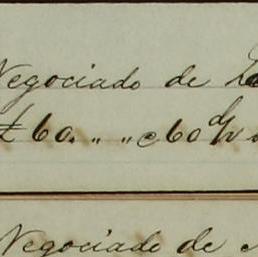 Negociado de
£60. „ „ c 60 d/v
Negociado de